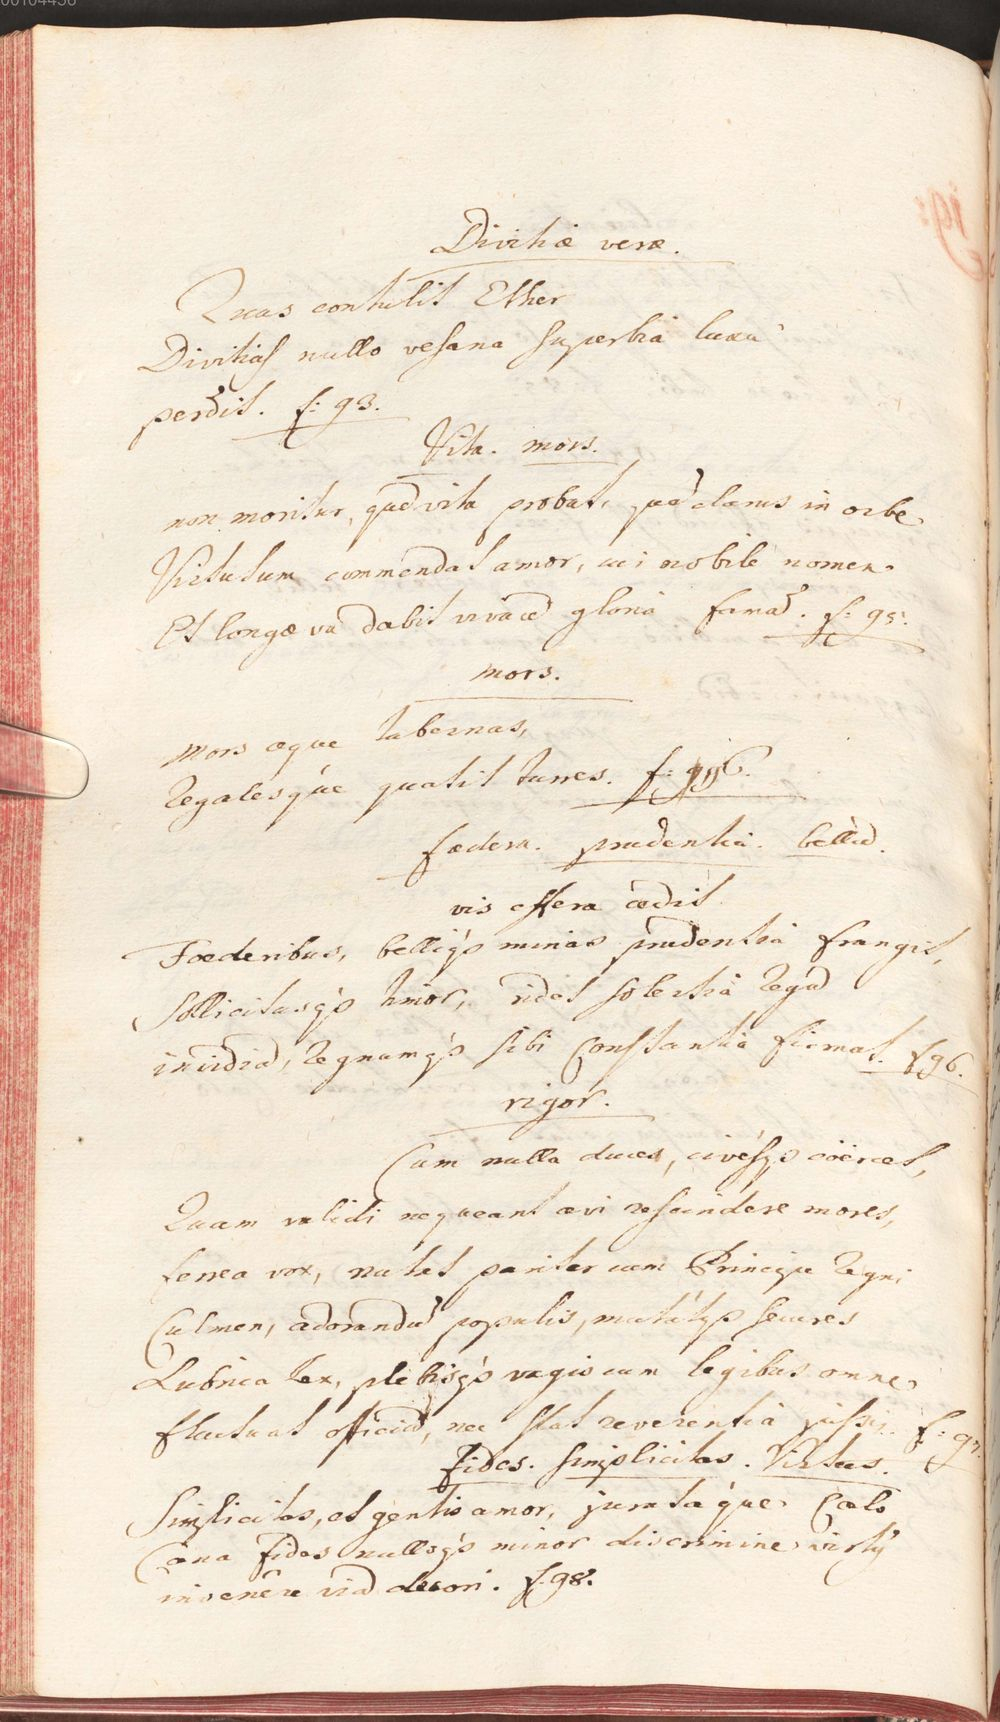 00104456
Divitiæ veræ.
Quas contulit Ether
Divitias nullo vesana superbiâ luxu
perdit. f: 93.
Vita. mors.
non moritur, quē vita probat, quē clarus in orbe
Virtutum commendat amor, cui nobile nomen
Et longæva dabit vivacē gloriâ famā. f: 95.
mors.
Mors æque tabernas,
Regalesq́ue quatit turres. f: 96.
fœdera. prudentiâ. bellū.
vis effera cædit
Fœderibus, belliq́3 minas prudentiâ frangit,
Sollicitusq́3 timor, ridet solertiâ regū
invidiā, regnumq́3 sibi Constantiâ firmat. f 96.
rigor.
Cum nulla duces, civesq́3 coërcet,
Quam validi nequeant ævi rescindere mores,
ferrea vox, nutat pariter cum Principe regni
Culmen, adorandū populis, mutatq3 secures
Lubrica lex, plebisq́3 vagis cum legibus omne
fluctuat officiū, nec stat reverentiâ jussis. f: 97.
Fides. simplicitas. Virtus.
Simplicitas, et gentis amor, junctaq́ue Cælo
Cana fides nulloq́3 minor discrimine virtus
invenêre viā decori. f. 98.